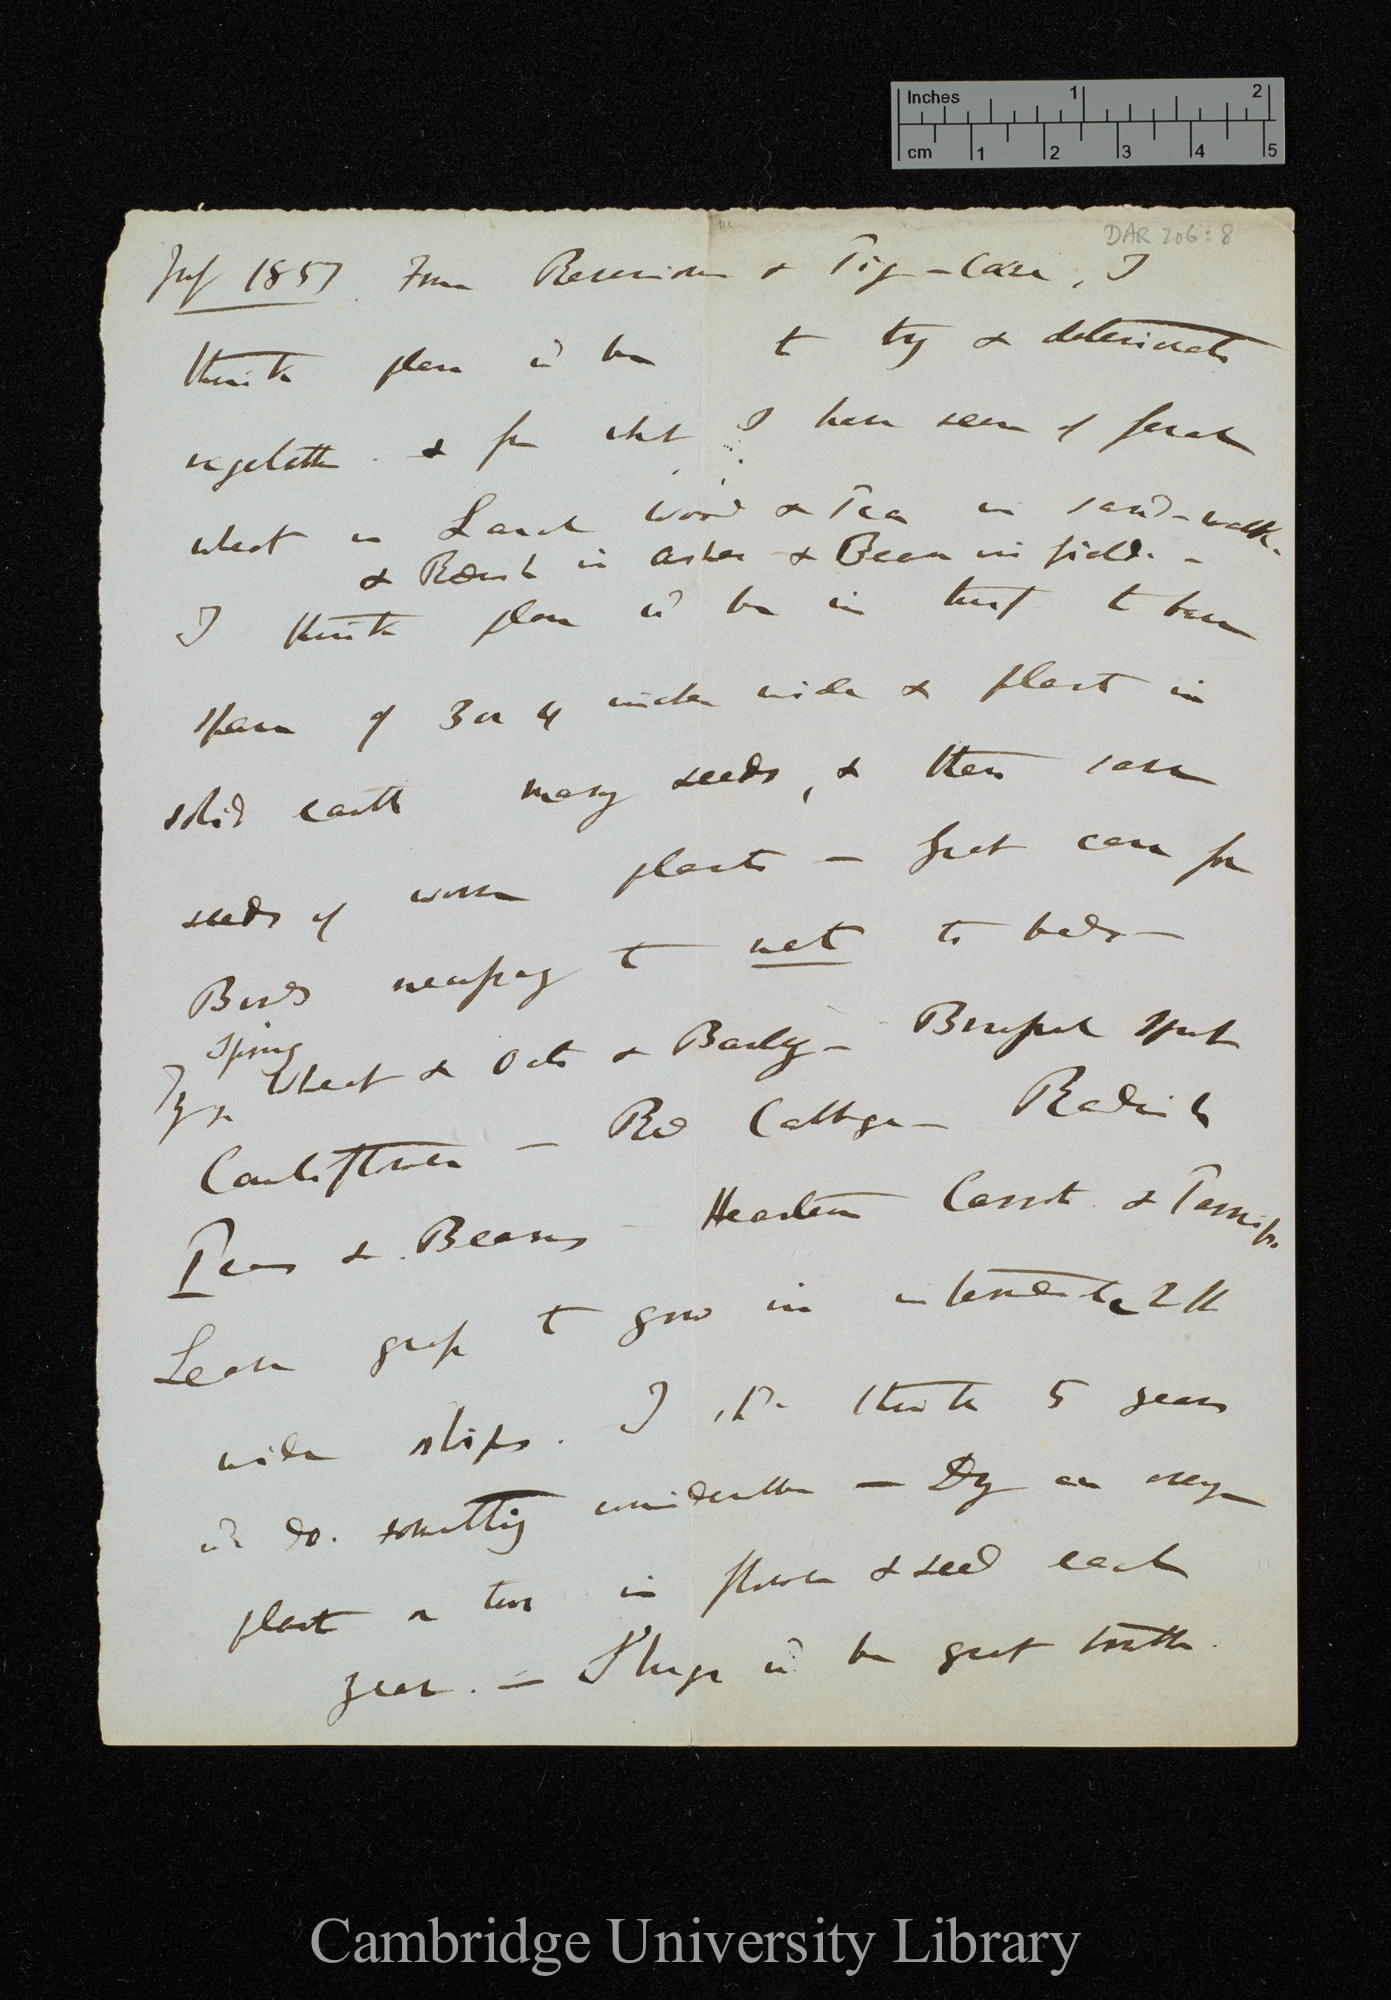 Inches 1 2
cm 1 2 3 4 5
DAR 206: 8
July 1857. From Reversion & Pig-case, I
think plan wd be to try & deteriorate
vegetable. & from what I have seen of
wheat in Land Wood & Pea in sand-walk.
& Radish in ashes & Bean in field. –
I think plan wd be in turf to have
spaces of 3 or 4 inches wide & plant in
solid earth many seeds, & then save
seeds of worse plants — Great care for
Birds necessary to net to beds —
Spring
Try Wheat & Oats & Barley — Brussel Sprout
Cauliflower — Red Cabbage — Radish
Peas & Beans – Heartsease Carrot & Parsnips.
Leave grass to grow in intermediate 2 ft
wide strips. I shd. think 5 years
wd do. something considerable — Dry an average
plant or two in flower & seed each
year. — Slugs wd be great trouble.
Cambridge University Library